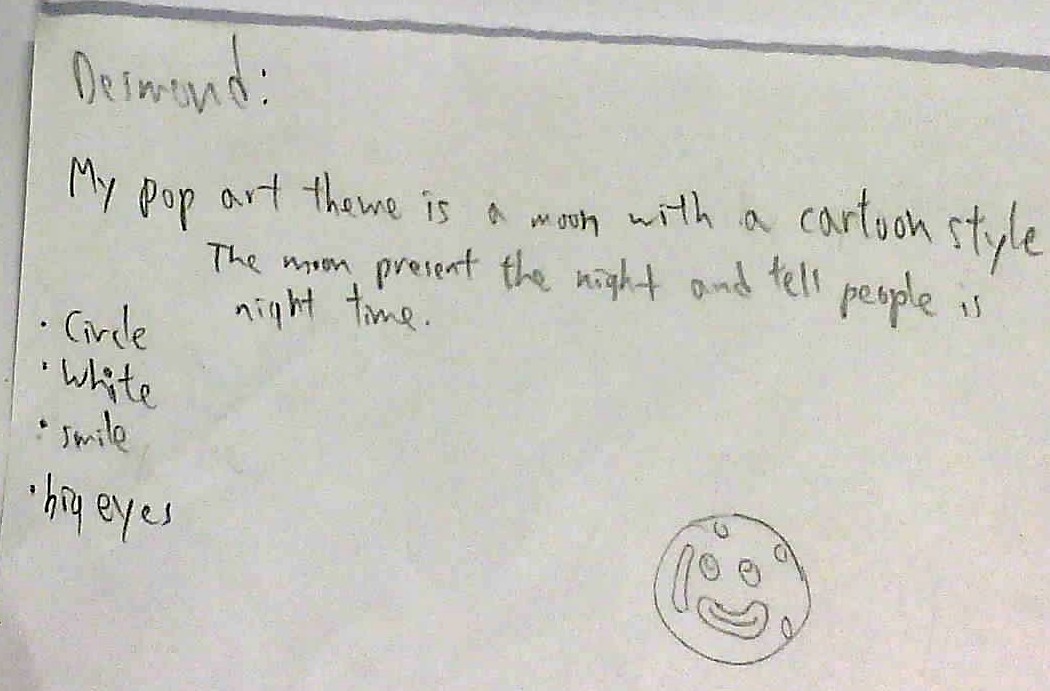 Desmond:
My pop art theme is a moon with a cartoon style
The moon present the night and tell people is
night time.
· Circle
· White
· smile
· big eyes